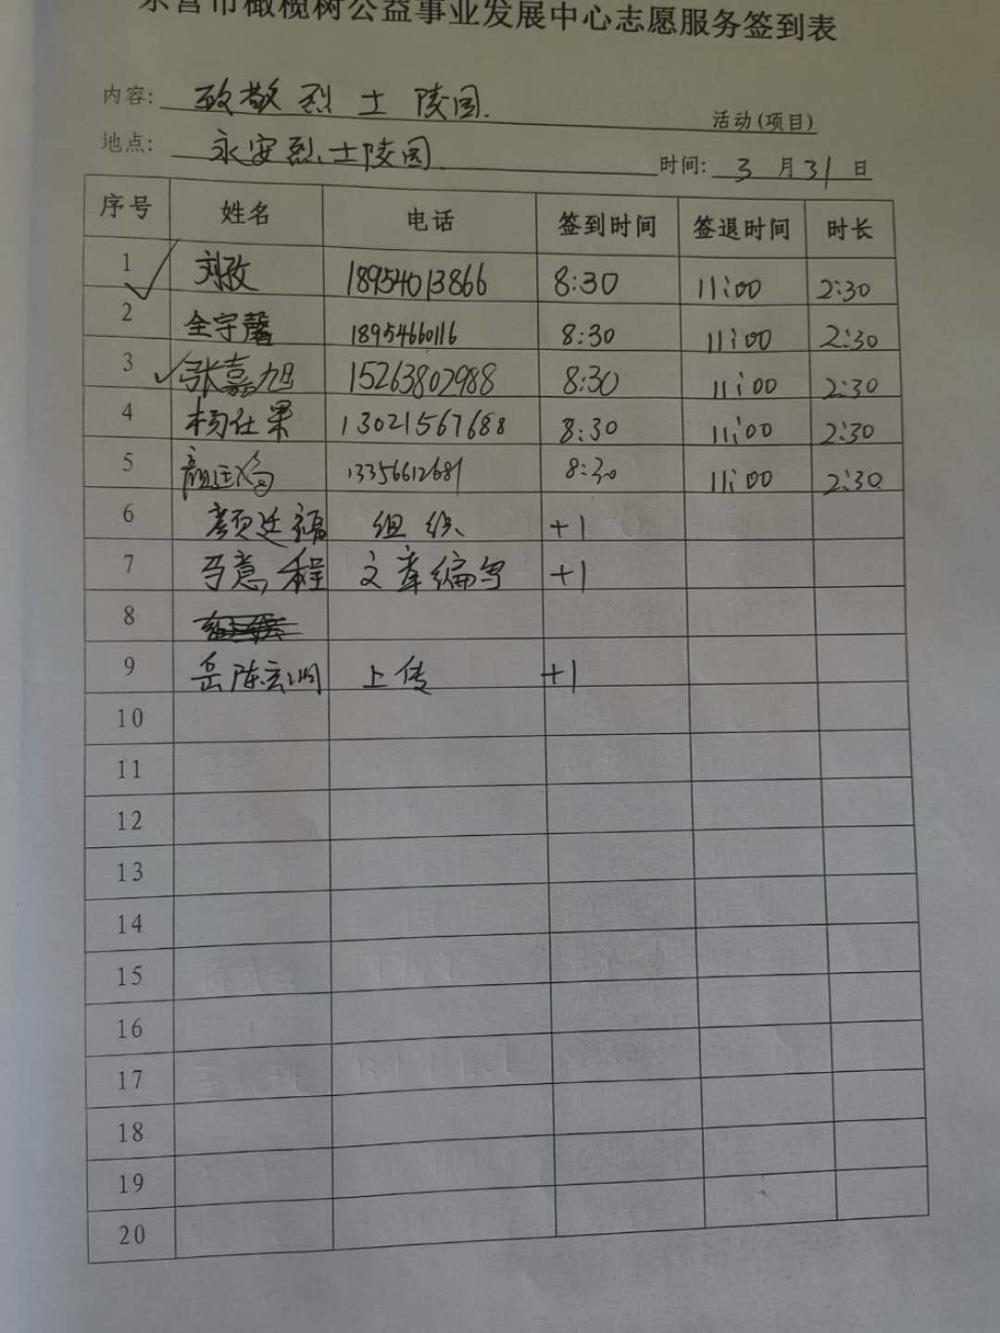 东营市橄榄树公益事业发展中心志愿服务签到表
内容: 致敬烈士陵园. 活动(项目)
地点: 永安烈士陵园. 时间: 3 月 31 日
序号 姓名 电话 签到时间 签退时间 时长
1 刘孜 18954013866 8:30 11:00 2:30
2 全宇馨 18954660116 8:30 11:00 2:30
3 张嘉旭 15263802988 8:30 11:00 2:30
4 杨仕果 13021567688 8:30 11:00 2:30
5 13356612681 8:30 11:00 2:30
6 颜廷福 组织 +1
7 马意程 文章编写 +1
8
9 岳陈 上传 +1
10
11
12
13
14
15
16
17
18
19
20